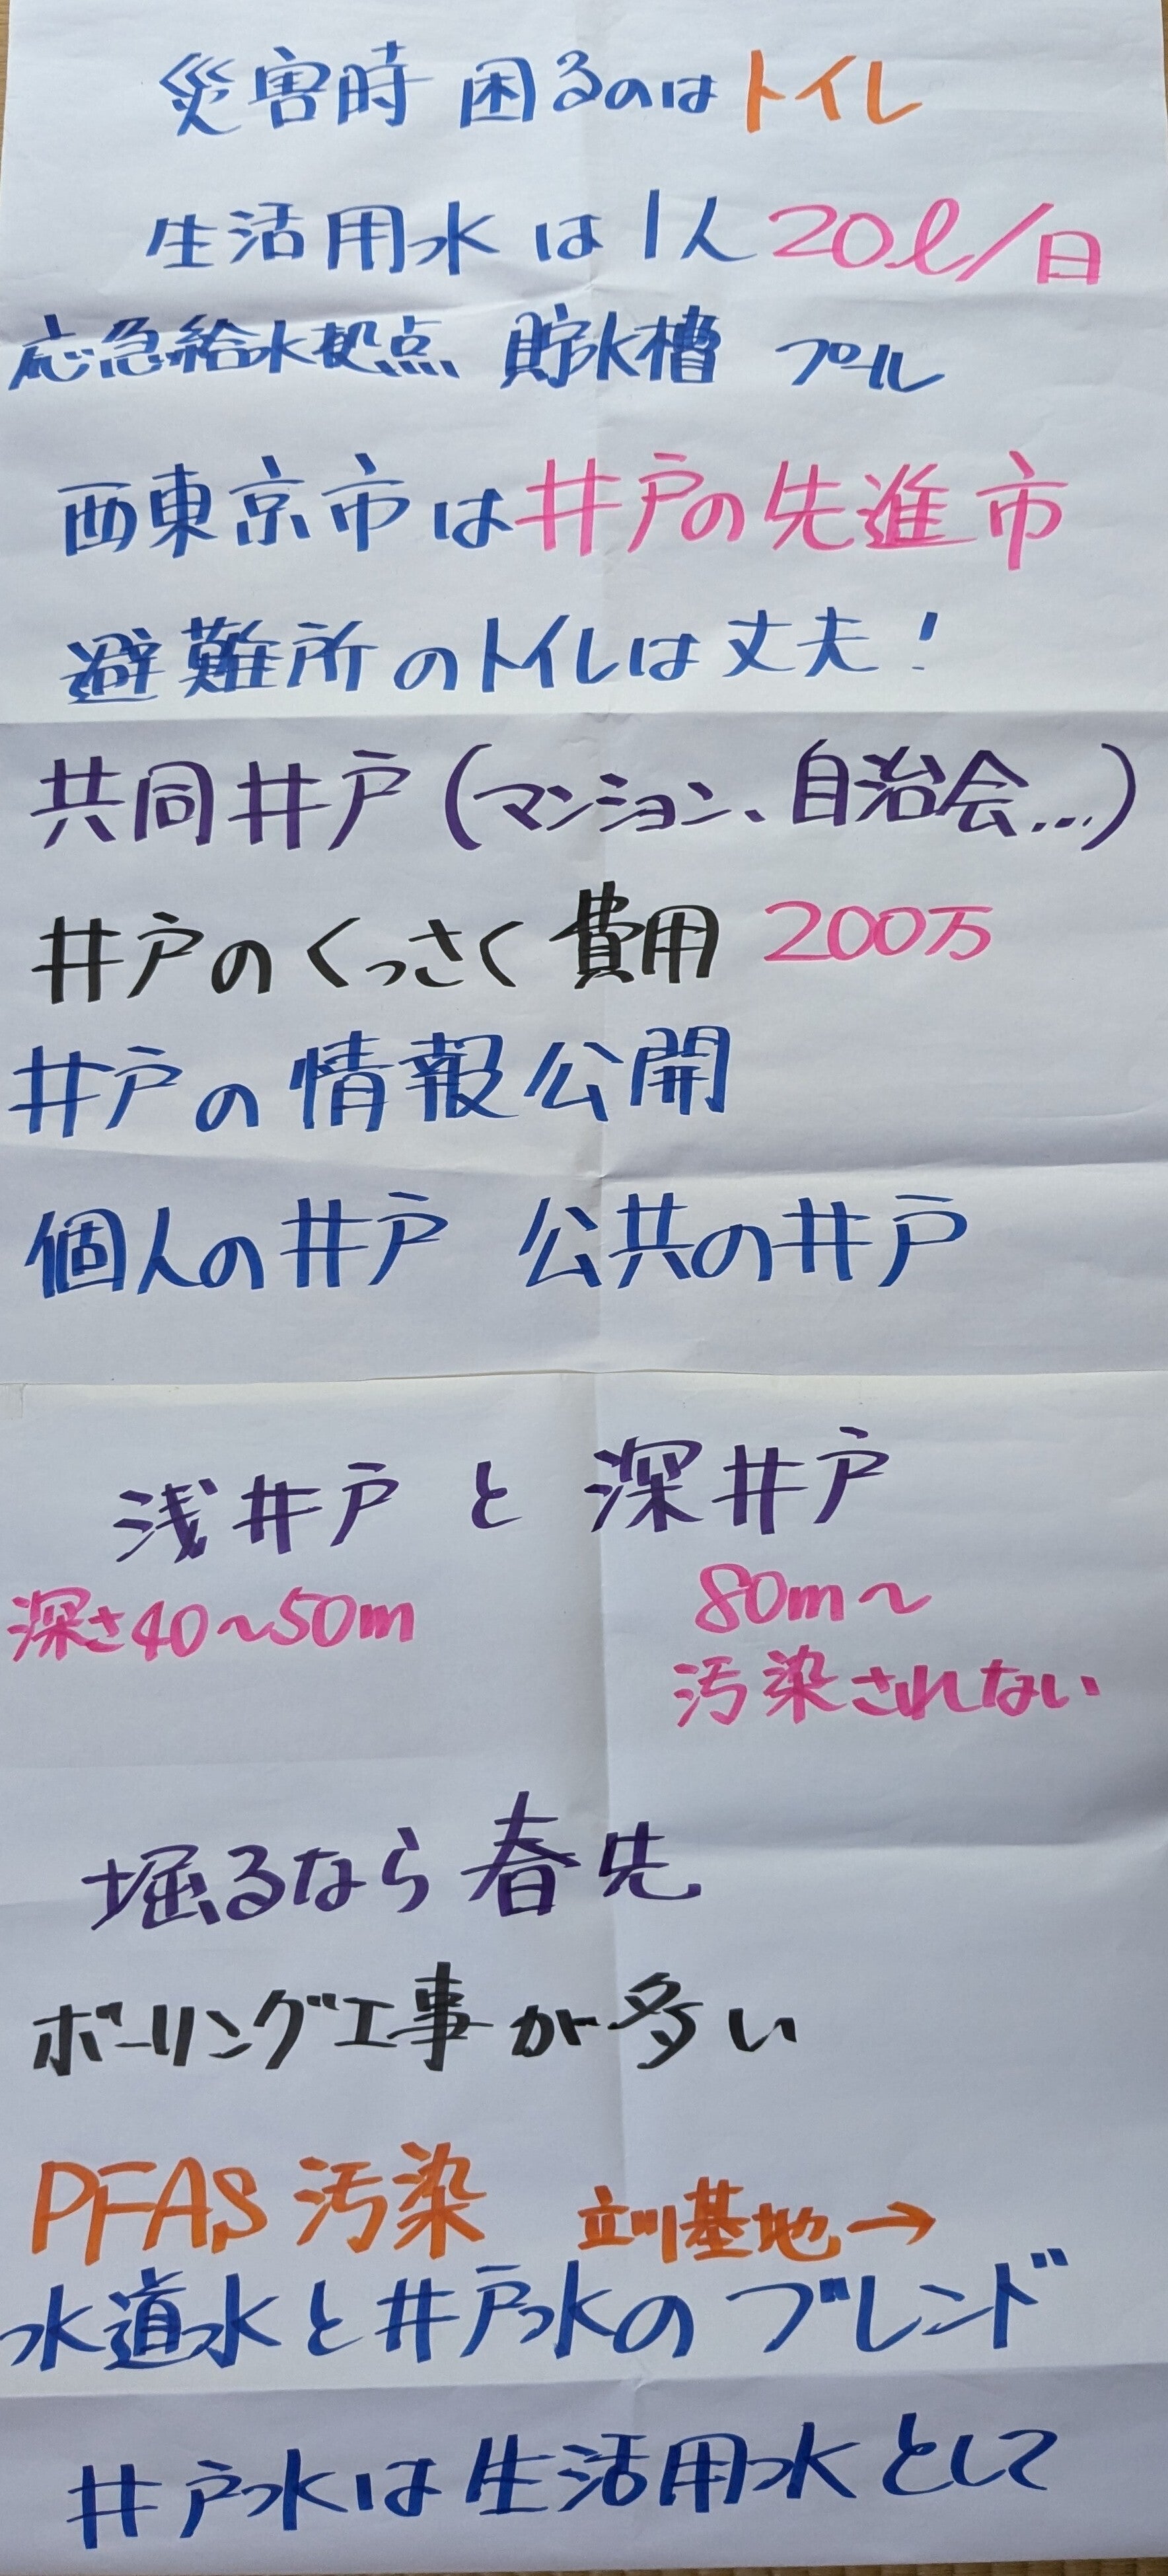 災害時 困るのはトイレ
生活用水は1人20ℓ/日
応急給水拠点 貯水槽 プール
西東京市は井戸の先進市
避難所のトイレは丈夫!
共同井戸(マンション、自治会...)
井戸のくっさく費用 200万
井戸の情報公開
個人の井戸 公共の井戸
浅井戸と深井戸
深さ40~50m 80m~
汚染されない
堀るなら春先
ボーリング工事が多い
PFAS汚染 立川基地→
水道水と井戸水のブレンド
井戸水は生活用水として